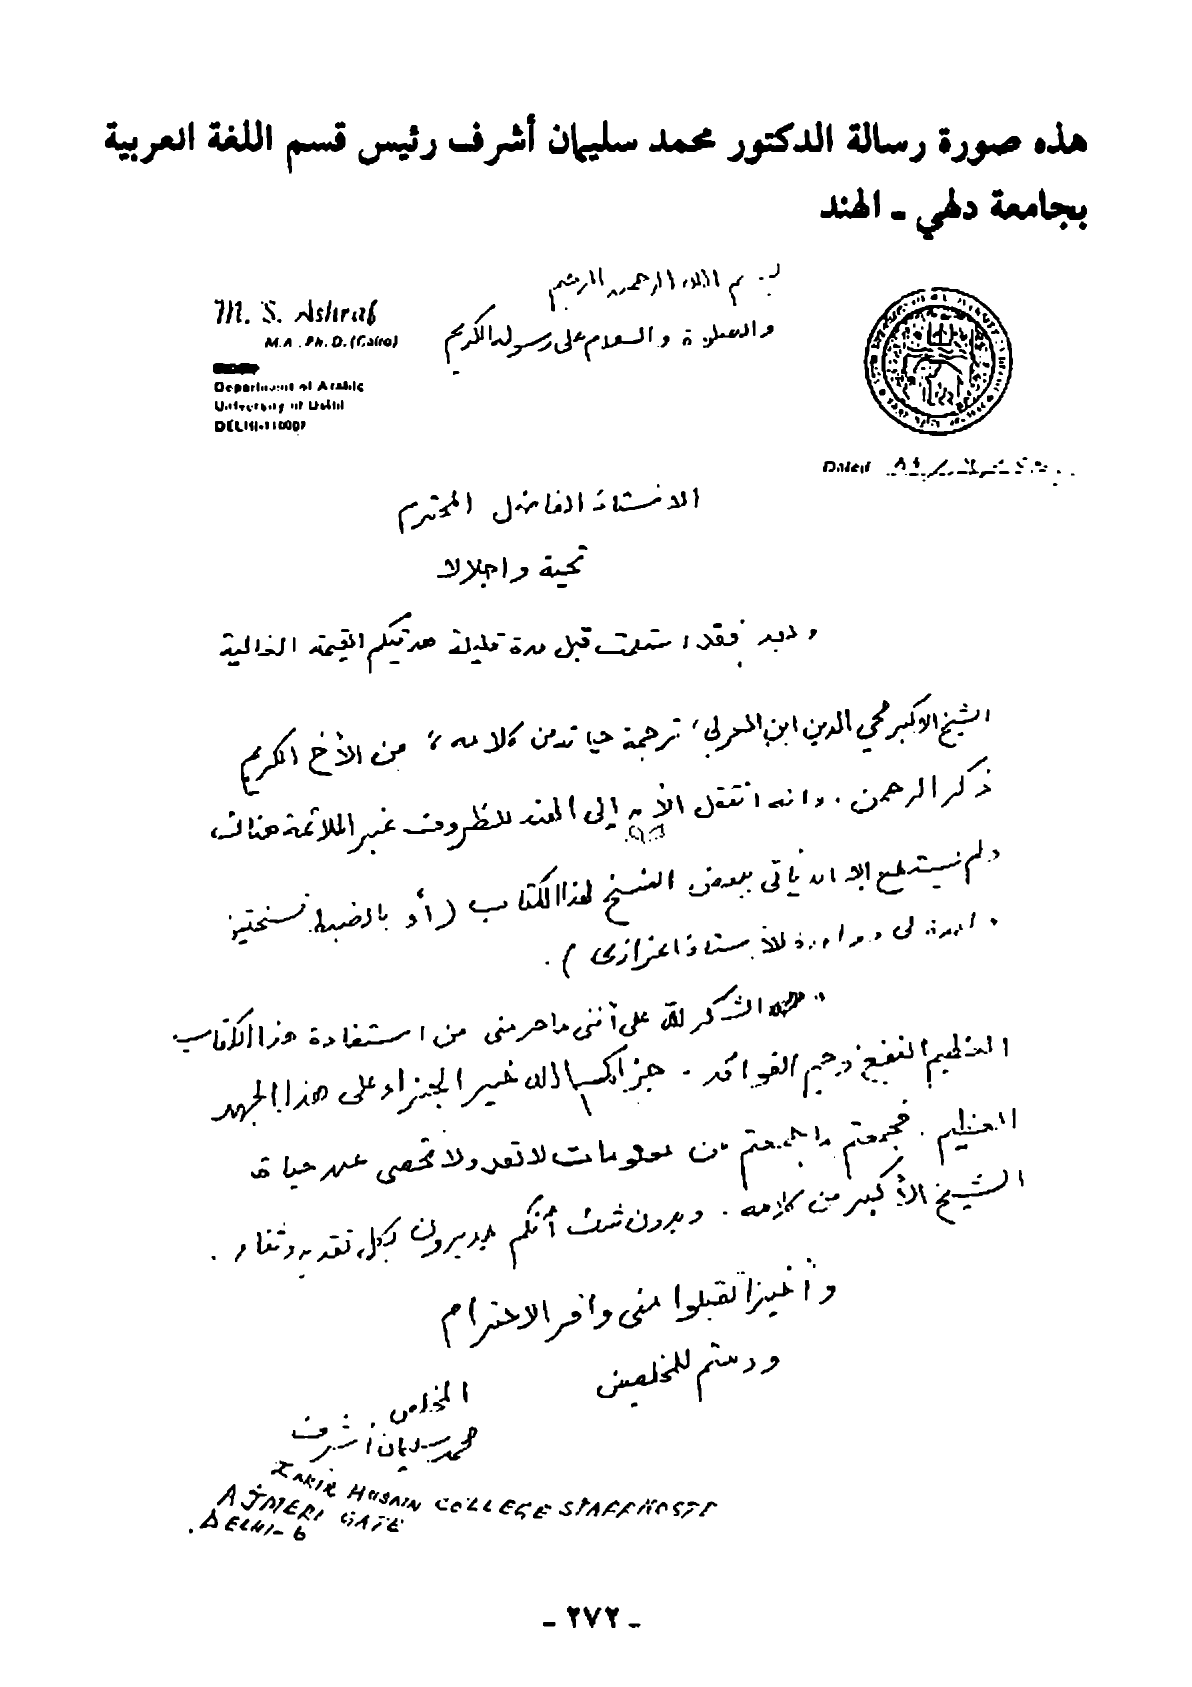 هذه صورة رسالة الدكتور محمد سليمان أشرف رئيس قسم اللغة العربية
بجامعة دلهي ـ الهند
بسم الله الرحمن الرحيم
والصلوة والسلام على رسوله الكريم
M. S. Ashraf
M.A. Ph. D. (Cairo)
Department of Arabic
University of Delhi
DELHI-110007
Dated
الاستاذ الفاضل المحترم
تحية واجلالا
وبعد فقد استلمت قبل مدة قليلة هديتكم القيمة الغالية
الشيخ الاكبر محي الدين ابن العربي، ترجمة حياته من كلامه، من الأخ الكريم
ذكر الرحمن. وانه انتقل الآن إلى الهند للظروف غير الملائمة هناك،
ولم يستطع الا ان يأتي ببعض النسخ لهذا الكتاب (أو بالضبط نسختين
واحدة لى و واحدة للأستاذ اعزازى).
الشكر لله على أننى ما حرمنى من استفادة هذا الكتاب
العظيم النفع وجم الفوائد. جزاكم الله خير الجزاء على هذا الجهد
العظيم. فجمعتم ما جمعتم من معلومات لا تعد ولا تحصى عن حياة
الشيخ الأكبر من كلامه. وبدون شك أنكم جديرون بكل تقدير وثناء.
وأخيرا تقبلوا منى وافر الاحترام
ودمتم للمخلصين
المخلص
محمد سليمان اشرف
ZAKIR HUSAIN COLLEGE STAFF
AJMERI GATE
DELHI-6
ـ ٢٧٢ ـ